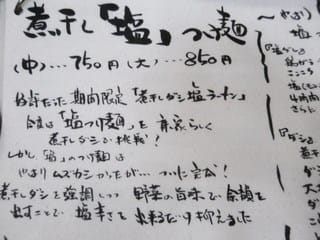 煮干し「塩」つけ麺
(中)…750円(大)…850円
好評だった 期間限定「煮干しダシ塩ラーメン」
今度は「塩つけ麺」を
煮干しダシで挑戦!
しかし「塩」のつけ麺は
やはりムズカシかったが…ついに完成!
煮干しダシを強調しつつ 野菜の旨味で余韻を
出すことで 塩辛さを 出来るだけ抑えました
〜やはり
塩
こころ
4時間
さらに
『ダシ』
煮干
ダシ
大